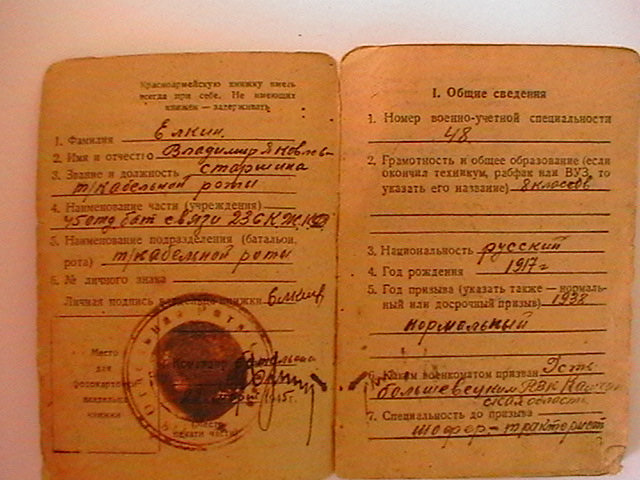 Красноармейскую книжку иметь
всегда при себе. Не имеющих
книжек — задерживать
1. Фамилия Елкин
2. Имя и отчество Владимир Яковлев-
3. Звание и должность старшина
т/кабельной роты
4. Наименование части (учреждения)
45 отд бат связи 236
5. Наименование подразделения (батальон,
рота) т/кабельной роты
6. № личного знака
Личная подпись книжки Елкин
Место
для
фотокарточки
владельца
книжки
Командир батальона
1945 г.
(Место
печати части)
I. Общие сведения
1. Номер военно-учетной специальности
48
2. Грамотность и общее образование (если
окончил техникум, рабфак или ВУЗ, то
указать его название) 8 классов
3. Национальность русский
4. Год рождения 1917 г
5. Год призыва (указать также — нормаль-
ный или досрочный призыв) 1938
нормальный
6. Каким военкоматом призван
РВК
ская область
7. Специальность до призыва
шофер-тракторист